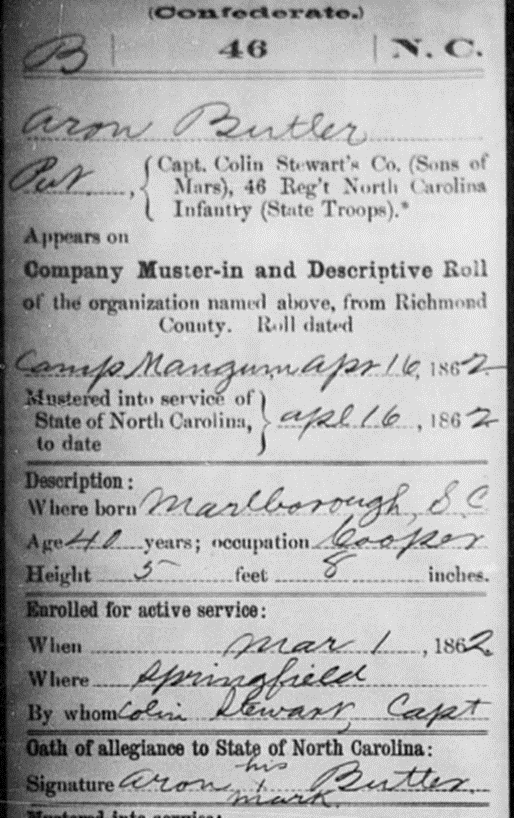 (Confederate.)
B | 46 | N. C.
Aron Butler
Pvt, { Capt. Colin Stewart's Co. (Sons of
Mars), 46 Reg't North Carolina
Infantry (State Troops).*
Appears on
Company Muster-in and Descriptive Roll
of the organization named above, from Richmond
County. Roll dated
Camp Mangum, Apr 16, 1862
Mustered into service of
State of North Carolina, } Apl 16, 1862
to date
Description:
Where born Marlborough, S C
Age 40 years; occupation Cooper
Height 5 feet 8 inches.
Enrolled for active service:
When Mar 1, 1862
Where Springfield
By whom Colin Stewart, Capt
Oath of allegiance to State of North Carolina:
his
Signature Aron + Butler
mark
Mustered into service: